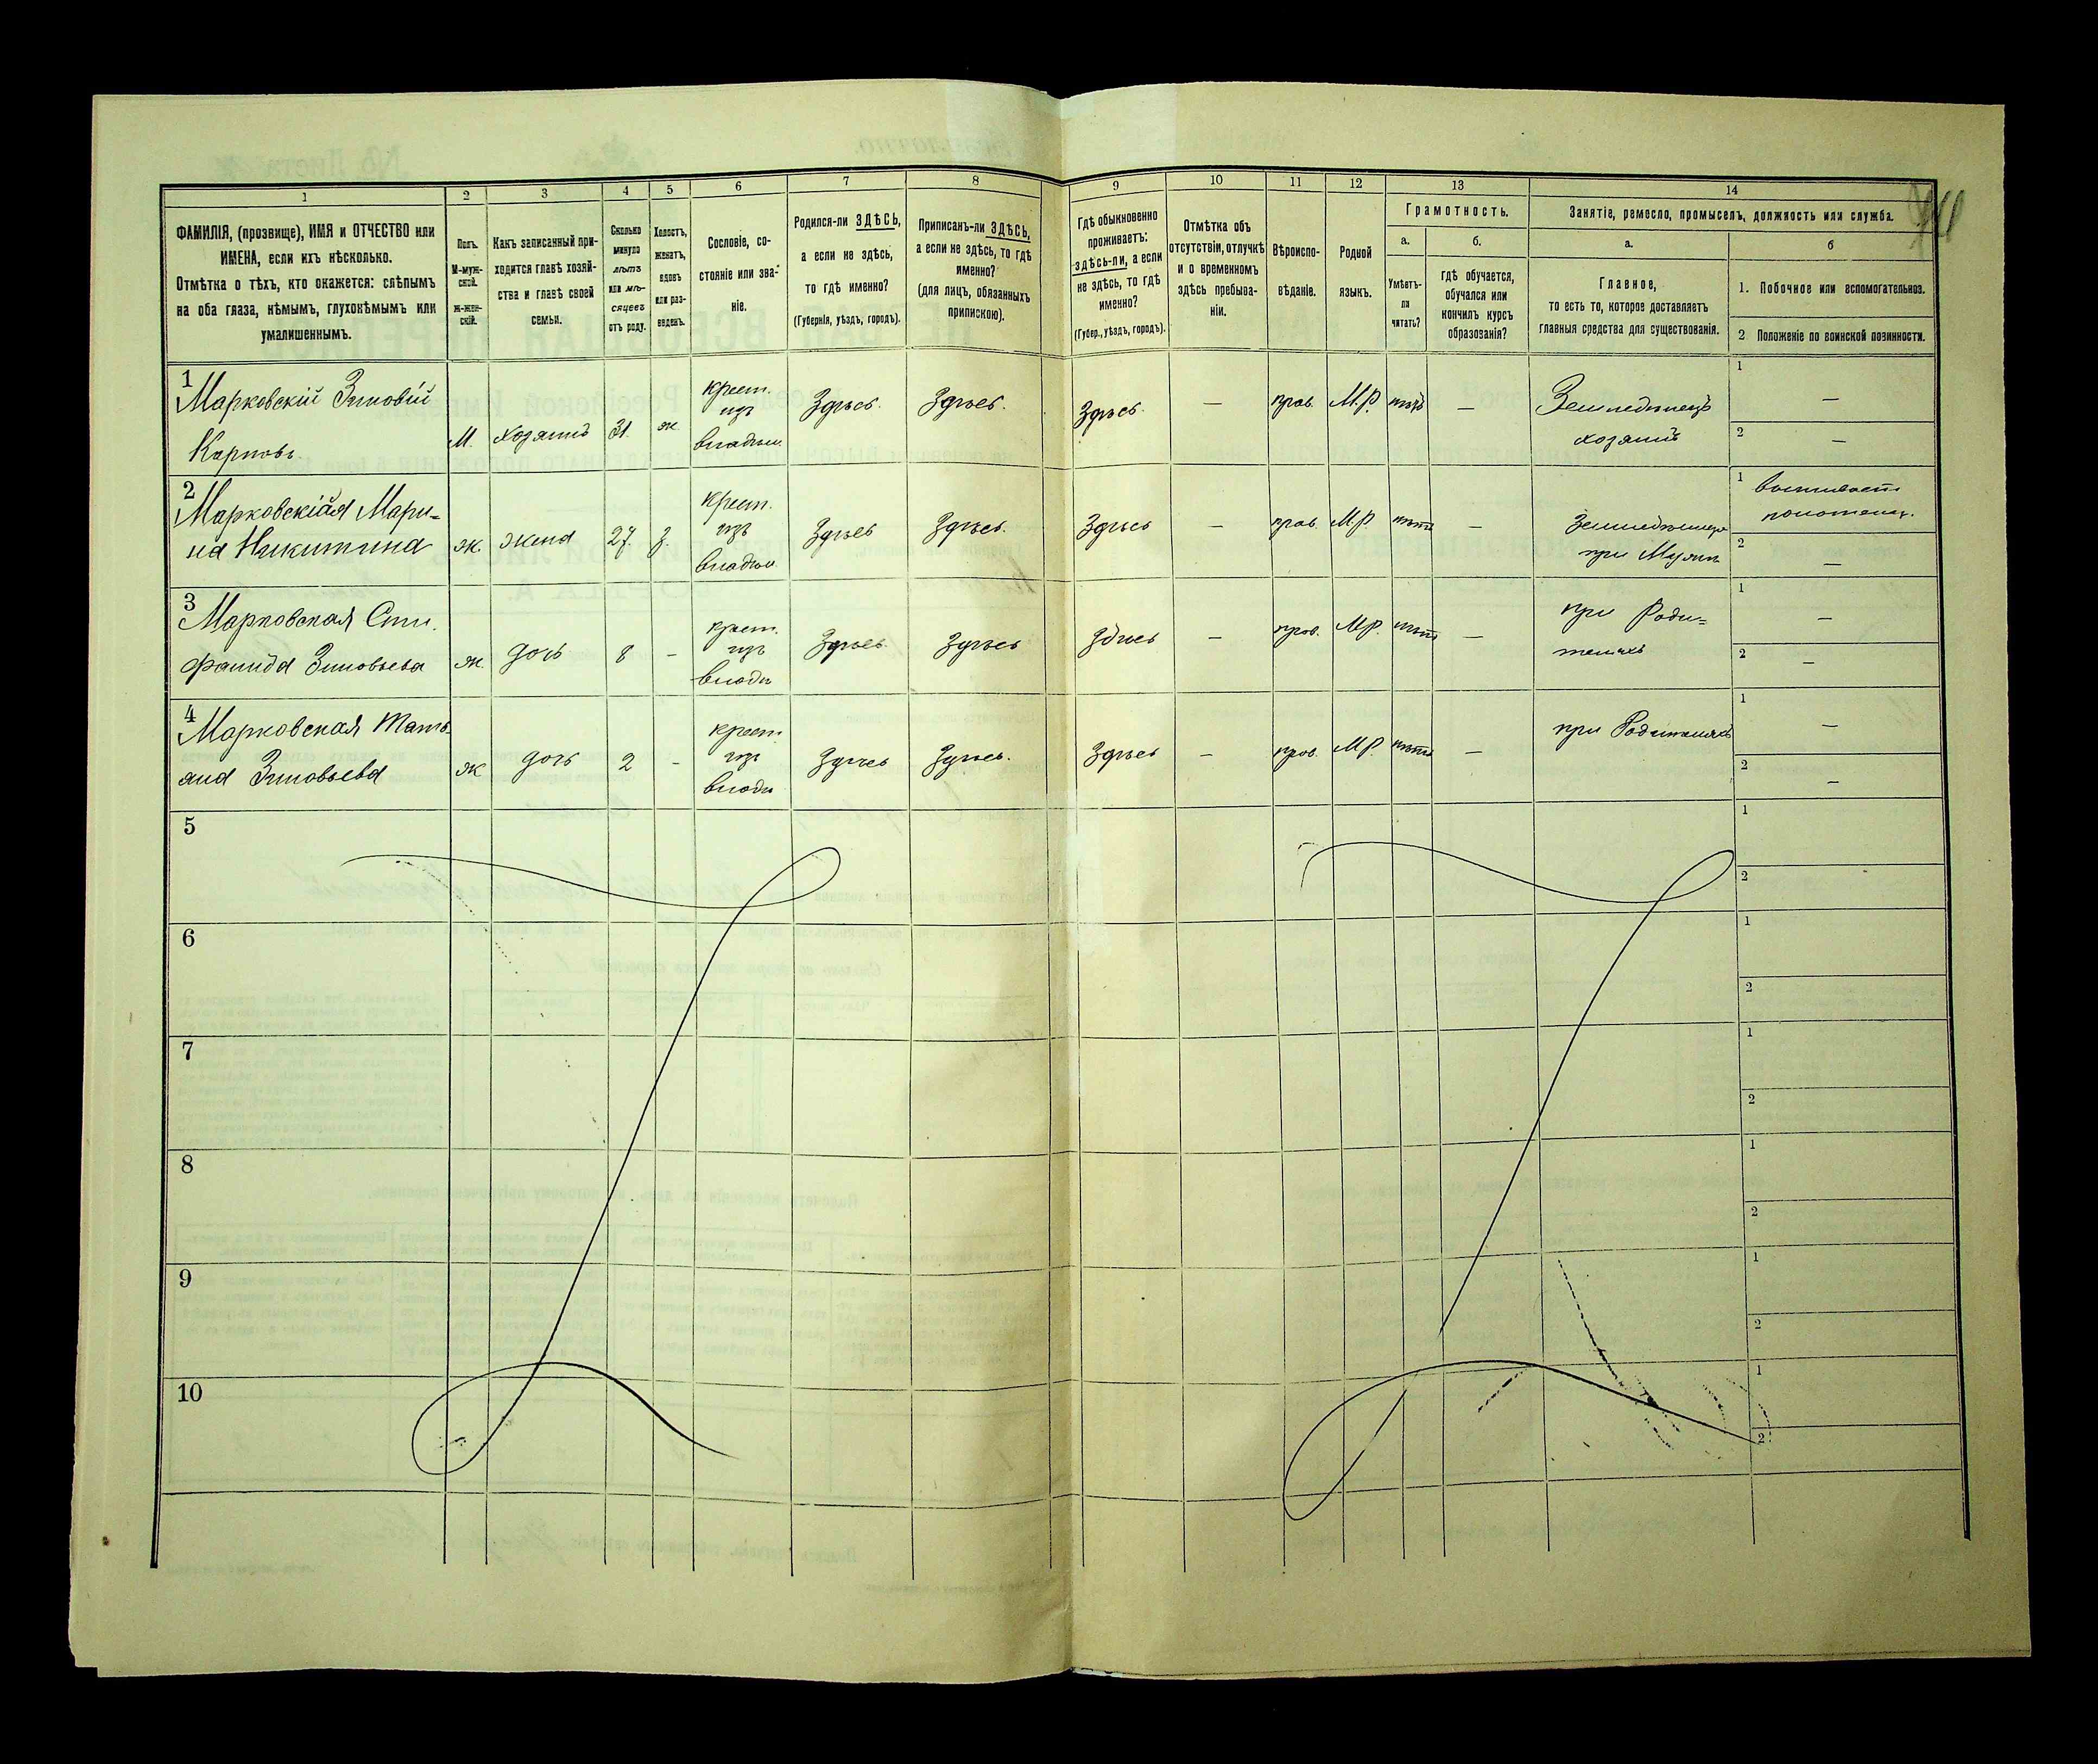 1 2 3 4 5 6 7 8 9 10 11 12 13 14
ФАМИЛІЯ, (прозвище), ИМЯ и ОТЧЕСТВО или
ИМЕНА, если ихъ нѣсколько.
Отмѣтка о тѣхъ, кто окажется: слѣпымъ
на оба глаза, нѣмымъ, глухонѣмымъ или
умалишеннымъ.
Полъ.
М-муж-
ской.
Ж-жен-
скій.
Какъ записанный при-
ходится главѣ хозяй-
ства и главѣ своей
семьи.
Сколько
минуло
лѣтъ
или мѣ-
сяцевъ
отъ роду.
Холостъ,
женатъ,
вдовъ
или раз-
веденъ.
Сословіе, со-
стояніе или зва-
ніе.
Родился-ли ЗДѢСЬ,
а если не здѣсь,
то гдѣ именно?
(Губернія, уѣздъ, городъ).
Приписанъ-ли ЗДѢСЬ,
а если не здѣсь, то гдѣ
именно?
(для лицъ, обязанныхъ
припискою).
Гдѣ обыкновенно
проживаетъ:
здѣсь-ли, а если
не здѣсь, то гдѣ
именно?
(Губер., уѣздъ, городъ).
Отмѣтка объ
отсутствіи, отлучкѣ
и о временномъ
здѣсь пребыва-
ніи.
Вѣроиспо-
вѣданіе.
Родной
языкъ.
Грамотность.
а.
Умѣетъ-
ли
читать?
б.
гдѣ обучается,
обучался или
кончилъ курсъ
образованія?
Занятіе, ремесло, промыселъ, должность или служба.
а.
Главное,
то есть то, которое доставляетъ
главныя средства для существованія.
б
1. Побочное или вспомогательное.
2 Положеніе по воинской повинности.
1
Марковскій Зиновій
Карповъ
М. хозяинъ 31. ж.
крест.
изъ
владѣл.
Здѣсь. Здѣсь. Здѣсь. — прав. М.Р. нѣтъ —
Земледѣлецъ
хозяинъ
1 —
2 —
2
Марковская Мари-
на Никитина
ж. жена 27. з.
крест.
изъ
владѣл
Здѣсь Здѣсь. Здѣсь — прав. М.Р. нѣтъ —
при Мужѣ
1
2 —
3
Марковская Сти
фанида Зиновьева
ж. дочь 8 -
крест.
изъ
владѣ
Здѣсь. Здѣсь Здѣсь — прав. М.Р. нѣтъ —
при Роди-
теляхъ
1 —
2 —
4
Марковская Тать
яна Зиновьева
ж дочь 2 -
крест.
изъ
владѣ
Здѣсь Здѣсь. Здѣсь — прав. М.Р. нѣтъ —
при Родителяхъ
1 —
2 —
5
1
2
6
1
2
7
1
2
8
1
2
9
1
2
10
1
2